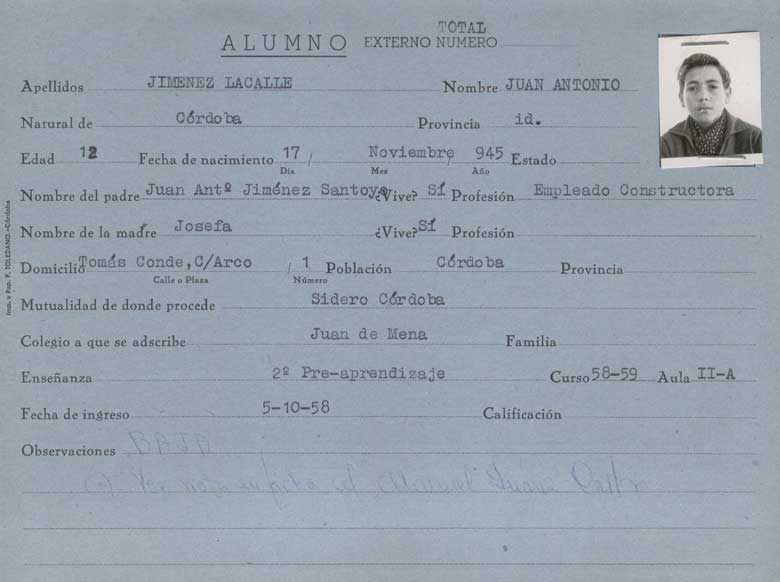 TOTAL
ALUMNO EXTERNO NUMERO
Apellidos JIMENEZ LACALLE Nombre JUAN ANTONIO
Natural de Córdoba Provincia id.
Edad 12 Fecha de nacimiento 17 / Noviembre 945 Estado
Día Mes Año
Nombre del padre Juan Antº Jiménez Santoya ¿Vive? Sí Profesión Empleado Constructora
Nombre de la madre Josefa ¿Vive? Sí Profesión
Domicilio Tomás Conde, C/Arco / 1 Población Córdoba Provincia
Calle o Plaza Número
Mutualidad de donde procede Sidero Córdoba
Colegio a que se adscribe Juan de Mena Familia
Enseñanza 2º Pre-aprendizaje Curso 58-59 Aula II-A
Fecha de ingreso 5-10-58 Calificación
Observaciones BAJA
Ver nota en ficha
Imp. y Pap. F. TOLEDANO.-Córdoba